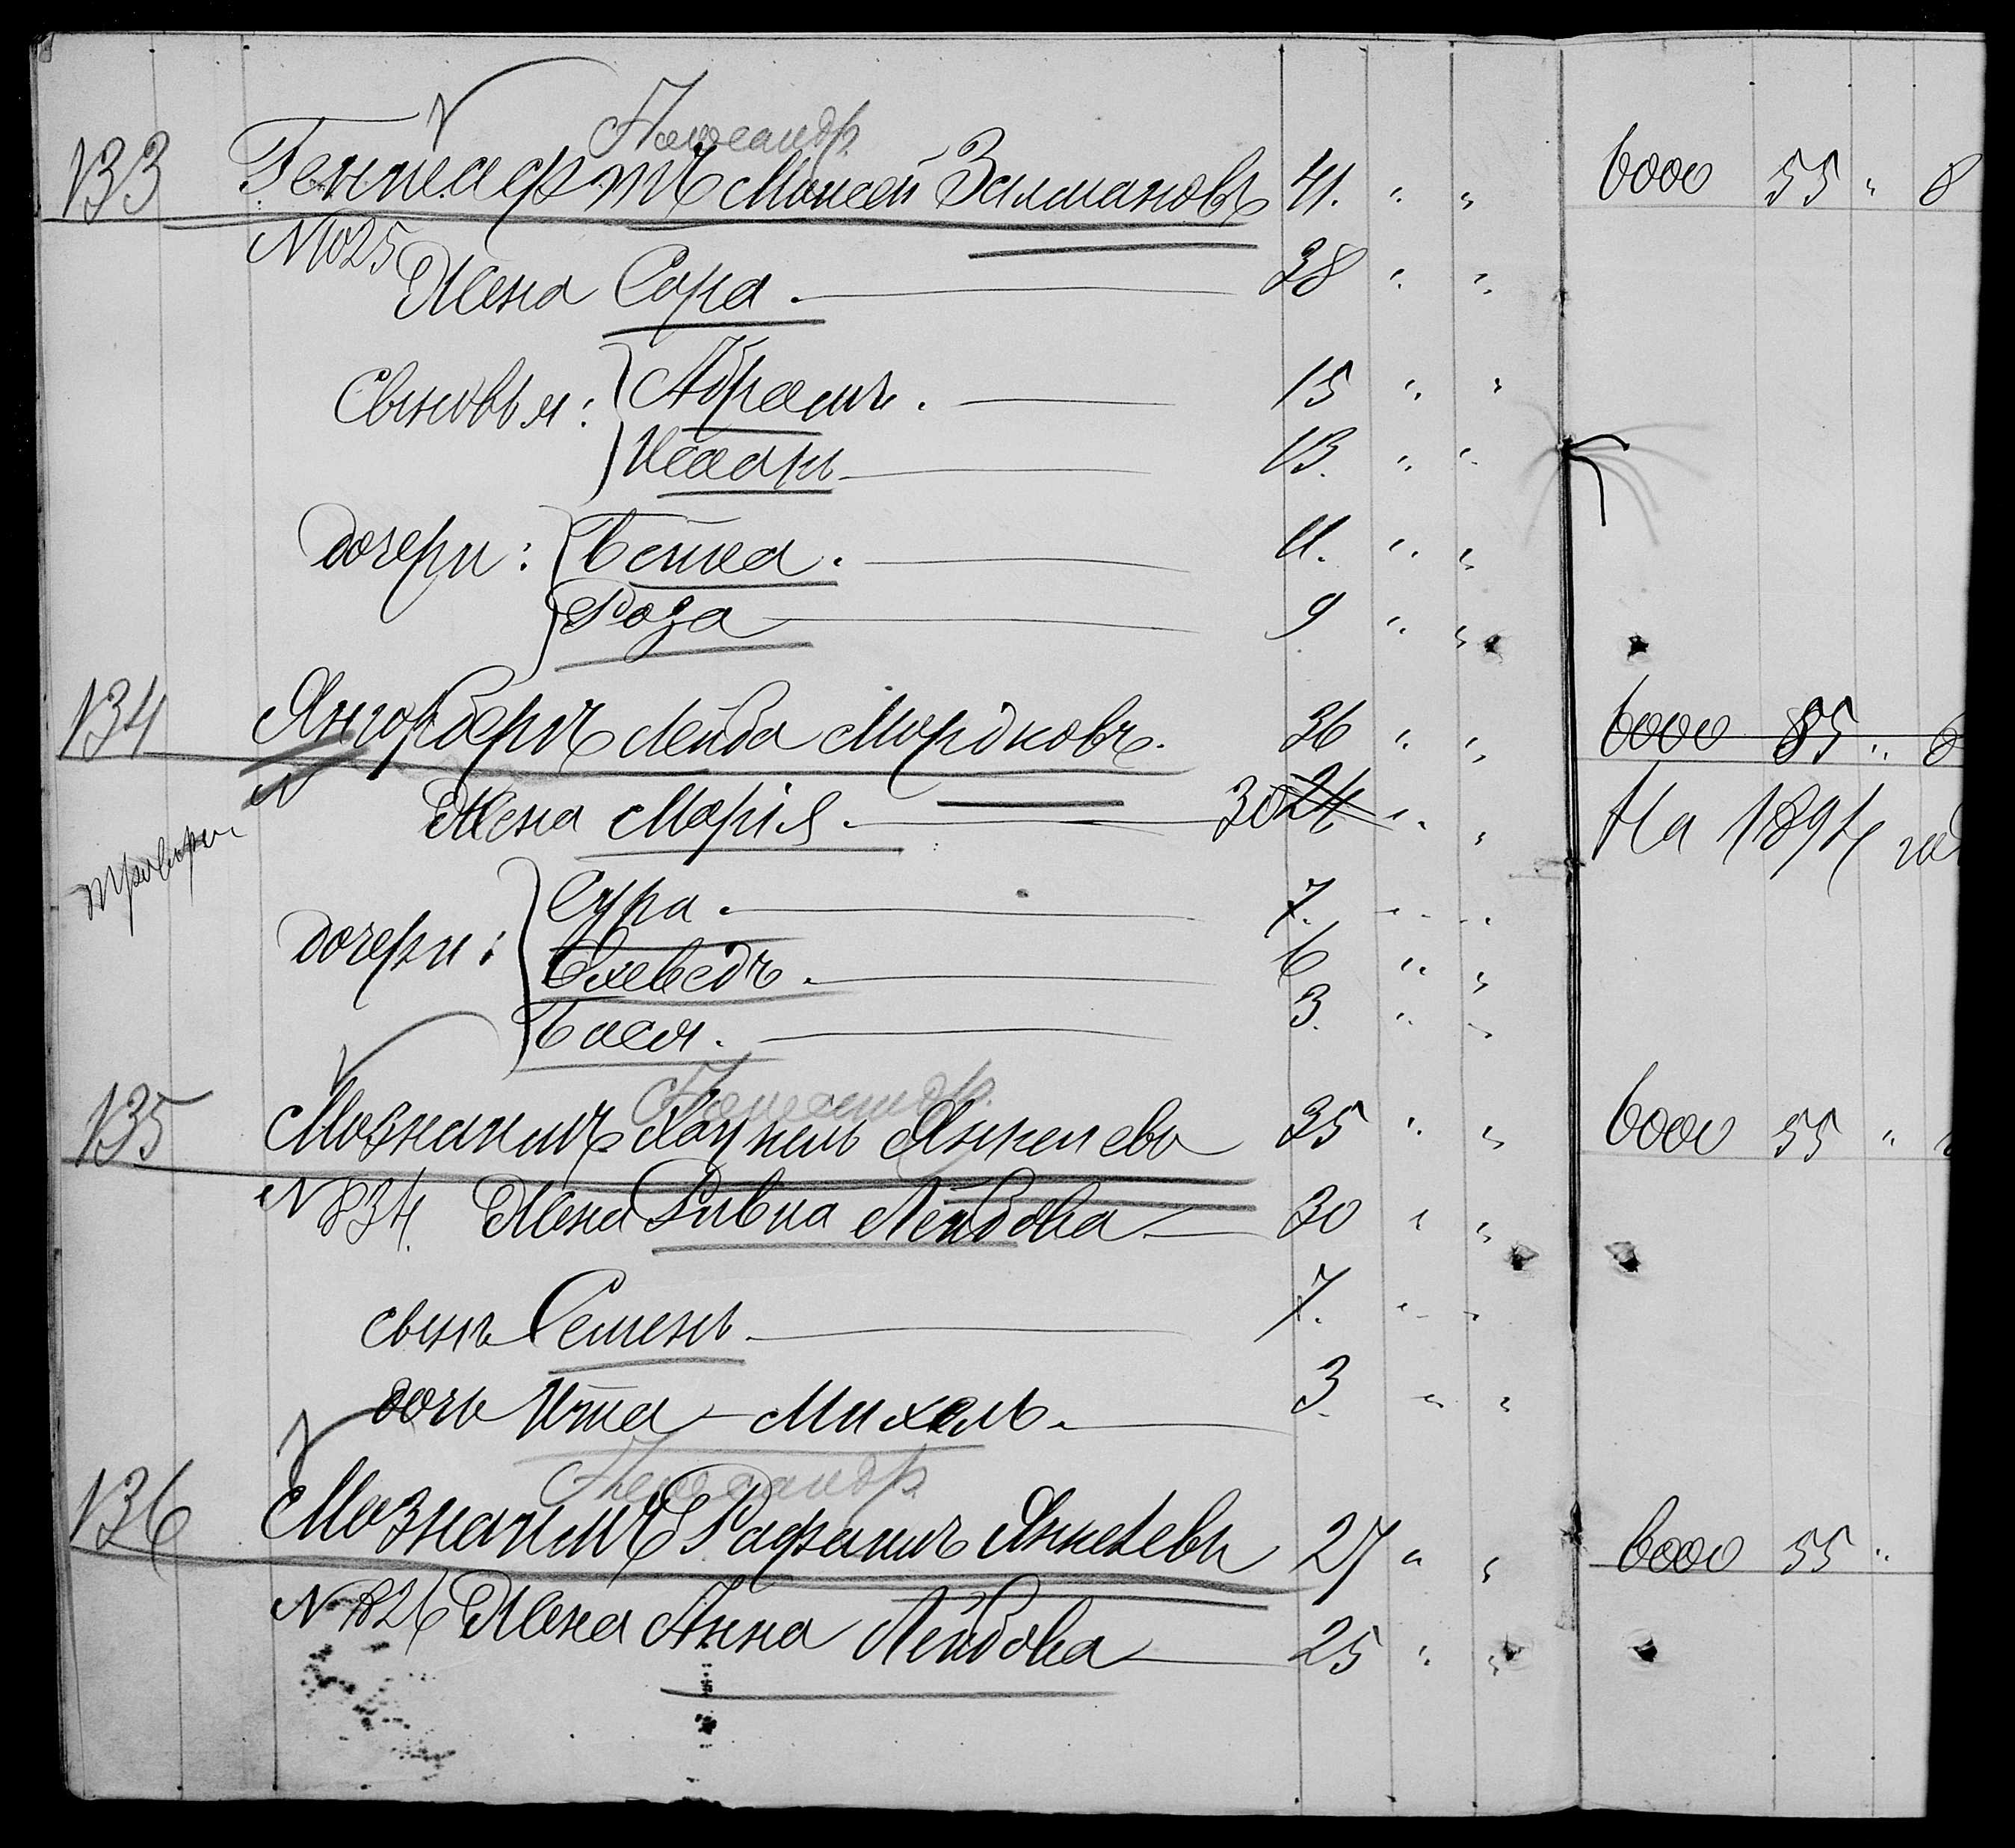 133 Геннеафтъ Моисей Залмановъ 41. " " 6000 55 " 8
№ 1025
Жена Сора. 38 " "
Сыновья: Абрамъ. 15 " "
Исаакъ 13. " "
дочери: Бейла. 11. " "
Роза 9 " "
134 Лейба Мордковъ. 36 " " 6000 55 " 8
№
Жена Марія. 30 24 " " На 1894 год
дочери: Сура. 7. " "
Ехеведъ. 6 " "
Бася. 3. " "
135 Мознаимъ Хацкель Янкелевъ 35 " " 6000 55 "
№ 834. Жена Ривка Лейбова 30 " "
сынъ Семенъ 7. " "
дочь Ита-Михель. 3. " "
136 Мознаимъ Рафаилъ Янкелевъ 27 " " 6000 55 "
№ 826 Жена Анна Лейбова 25 " "